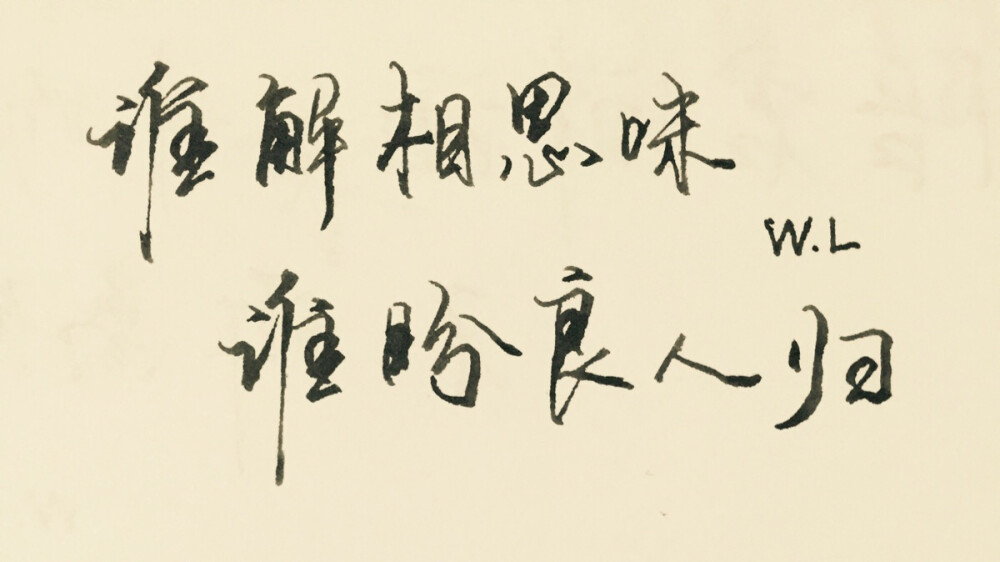 谁解相思味
W.L
谁盼良人归